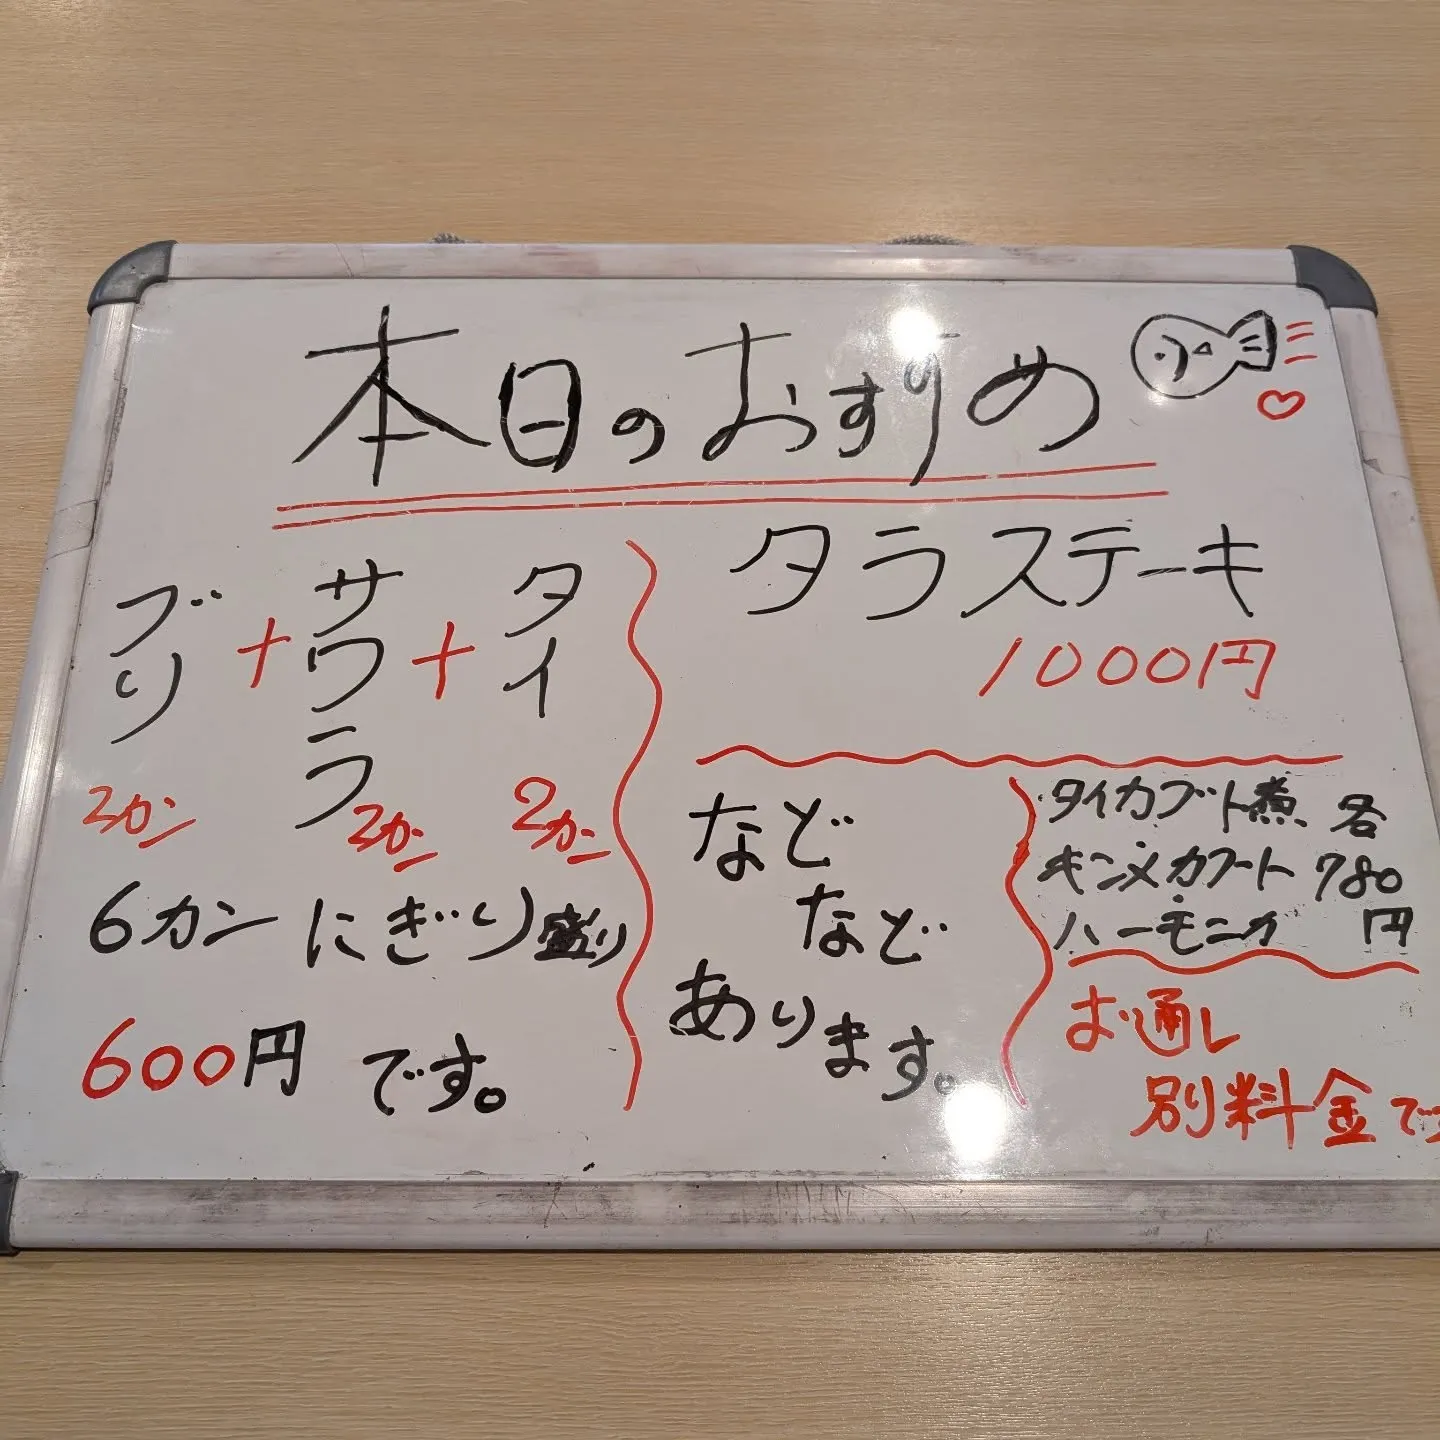 本日のおすすめ
タイ
+
サワラ
+
ブリ
2カン
2カン
2カン
6カン にぎり盛り
600円 です。
タラステーキ
1000円
などなど
あります。
タイカブト煮 各
キンメカブート 780
ハーモニカ 円
お通し
別料金です